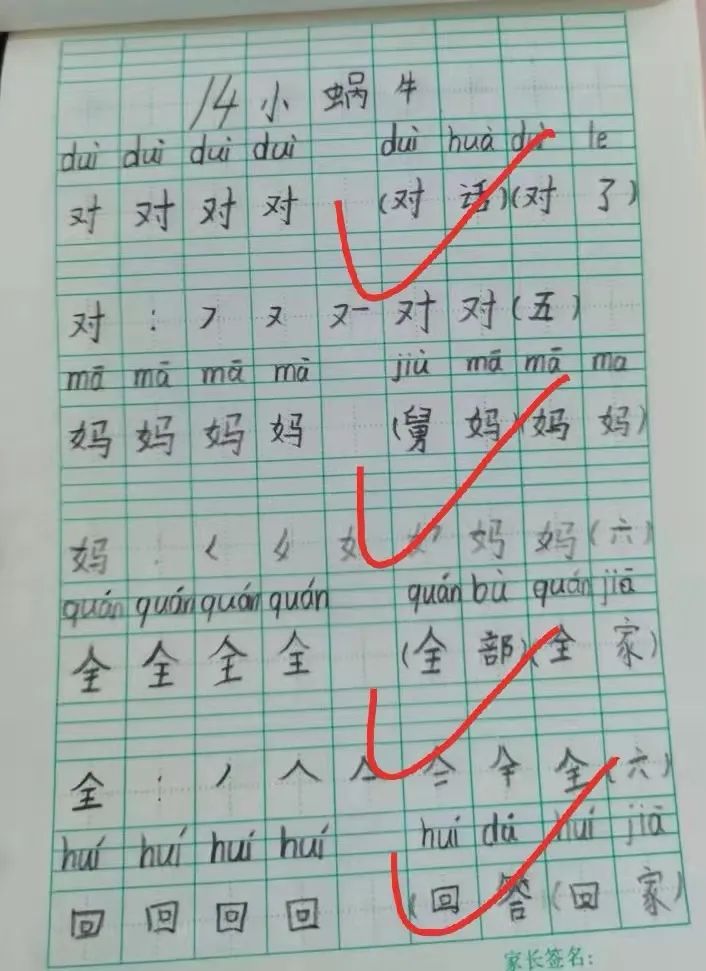 14 小 蜗 牛
duì duì duì duì duì huà duì le
对 对 对 对 (对 话)(对 了)
对 : フ 又 又一 对 对 (五)
mā mā mā mā jiù mā mā ma
妈 妈 妈 妈 (舅 妈)(妈 妈)
妈 : く 夕 女 妈 妈 (六)
quán quán quán quán quán bù quán jiā
全 全 全 全 (全 部)(全 家)
全 : 丿 人 亼 仐 全 (六)
huí huí huí huí huí dá huí jiā
回 回 回 回 (回 答)(回 家)
家长签名: